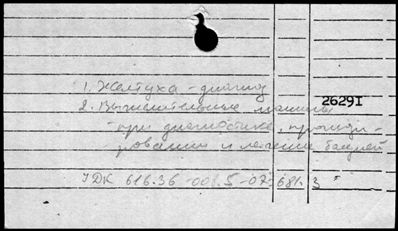 1. Желтуха - диагноз
2. Вычислительные машины
26291
при диагностике, прогнози-
ровании и лечении болезней
УДК 616.36-008.5-07:681.3